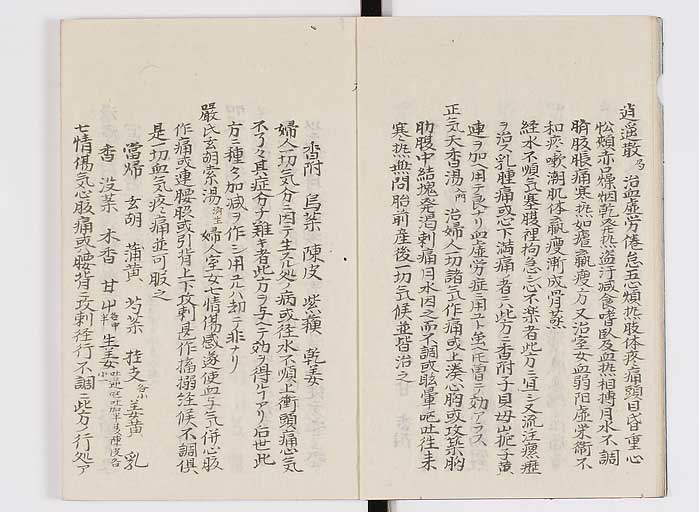 逍遥散 局 治血虚労倦怠五心煩热肢体疼痛頭目昏重心
忪頬赤口燥烟乾発热盗汗减食嗜臥及血热相搏月水不調
臍腹脹痛寒热如瘧羸瘦方又治室女血弱阳虚荣衛不
和疾嗽潮热肌体羸瘦漸成骨蒸
経水不順気塞腹裡拘急心不楽者此方ニ宜シ又流注瘰癧
ヲ治ス乳腫痛或心下満痛者ニハ此方ニ香附子貝母山栀子黄
連ヲ加ヘ用テ良ナリ血虚労症ニ用ユト
正気天香湯 治婦人一切諸気作痛或上湊心胸或攻築脇
肋腹中結塊発渇刺痛月水因之而不調或眩暈嘔吐往来
寒热無問胎前産後一切気候並皆治之
香附 烏薬 陳皮 紫蘓 乾姜
婦人一切気分ニ因テ生スル処ノ病或径水不順上衝頭痛心気
不了々其症分チ難キ者此方ヲ与ヘテ効ヲ得ヿアリ后世此
方ニ種々加减ヲ作シ用ユルハ却テ非ナリ
嚴氏玄胡索湯 済生 婦人室女七情傷感遂使血与気併心腹
作痛或連腰脇或引背上下攻刺甚作搐搦経候不調倶
是一切血気疼痛並可服之
當帰 玄胡 蒲黄 芍薬 桂支 各小 姜黄 乳
香 没薬 木香 各中 甘艸 半 生姜
七情傷気心腹痛或腰背ニ攻刺径行不調ニ此方ノ行処ヿ